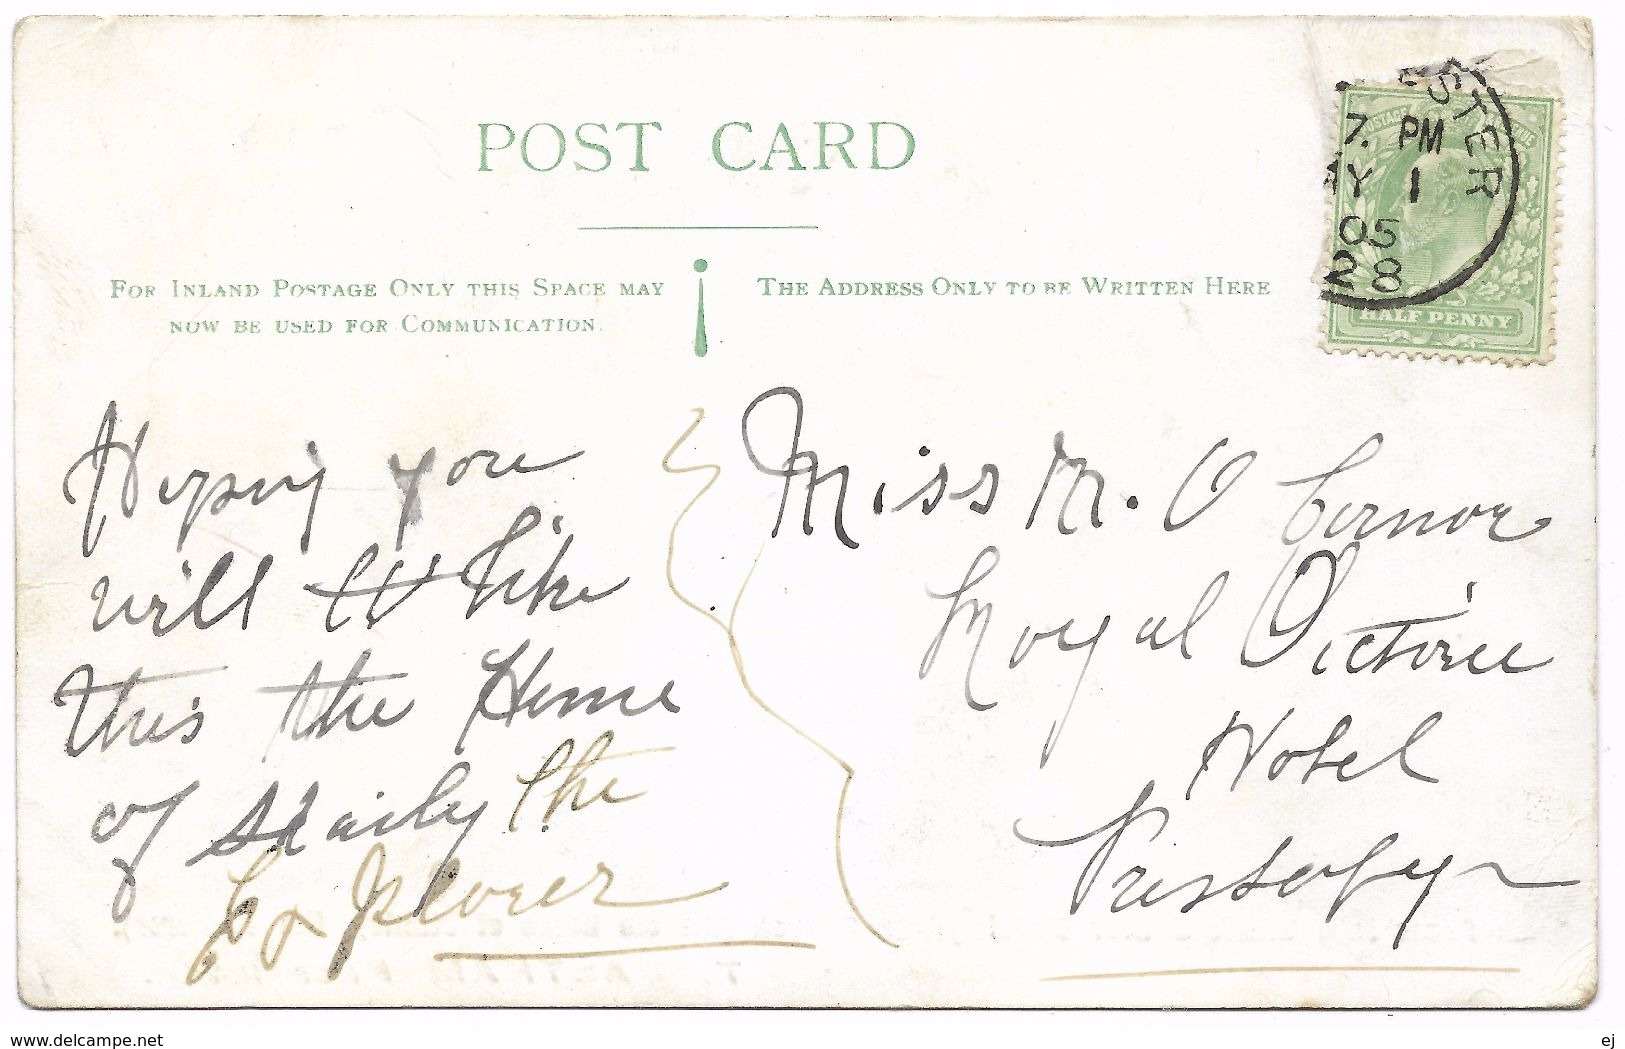 POST CARD
FOR INLAND POSTAGE ONLY THIS SPACE MAY
NOW BE USED FOR COMMUNICATION.
THE ADDRESS ONLY TO BE WRITTEN HERE
STER
7. PM
AY 1
05
28
POSTAGE
HALF PENNY
Hoping you
will like
this the Home
of Staily the
Explorer
Miss M. O
Royal Victoria
Hotel
www.delcampe.net
ej